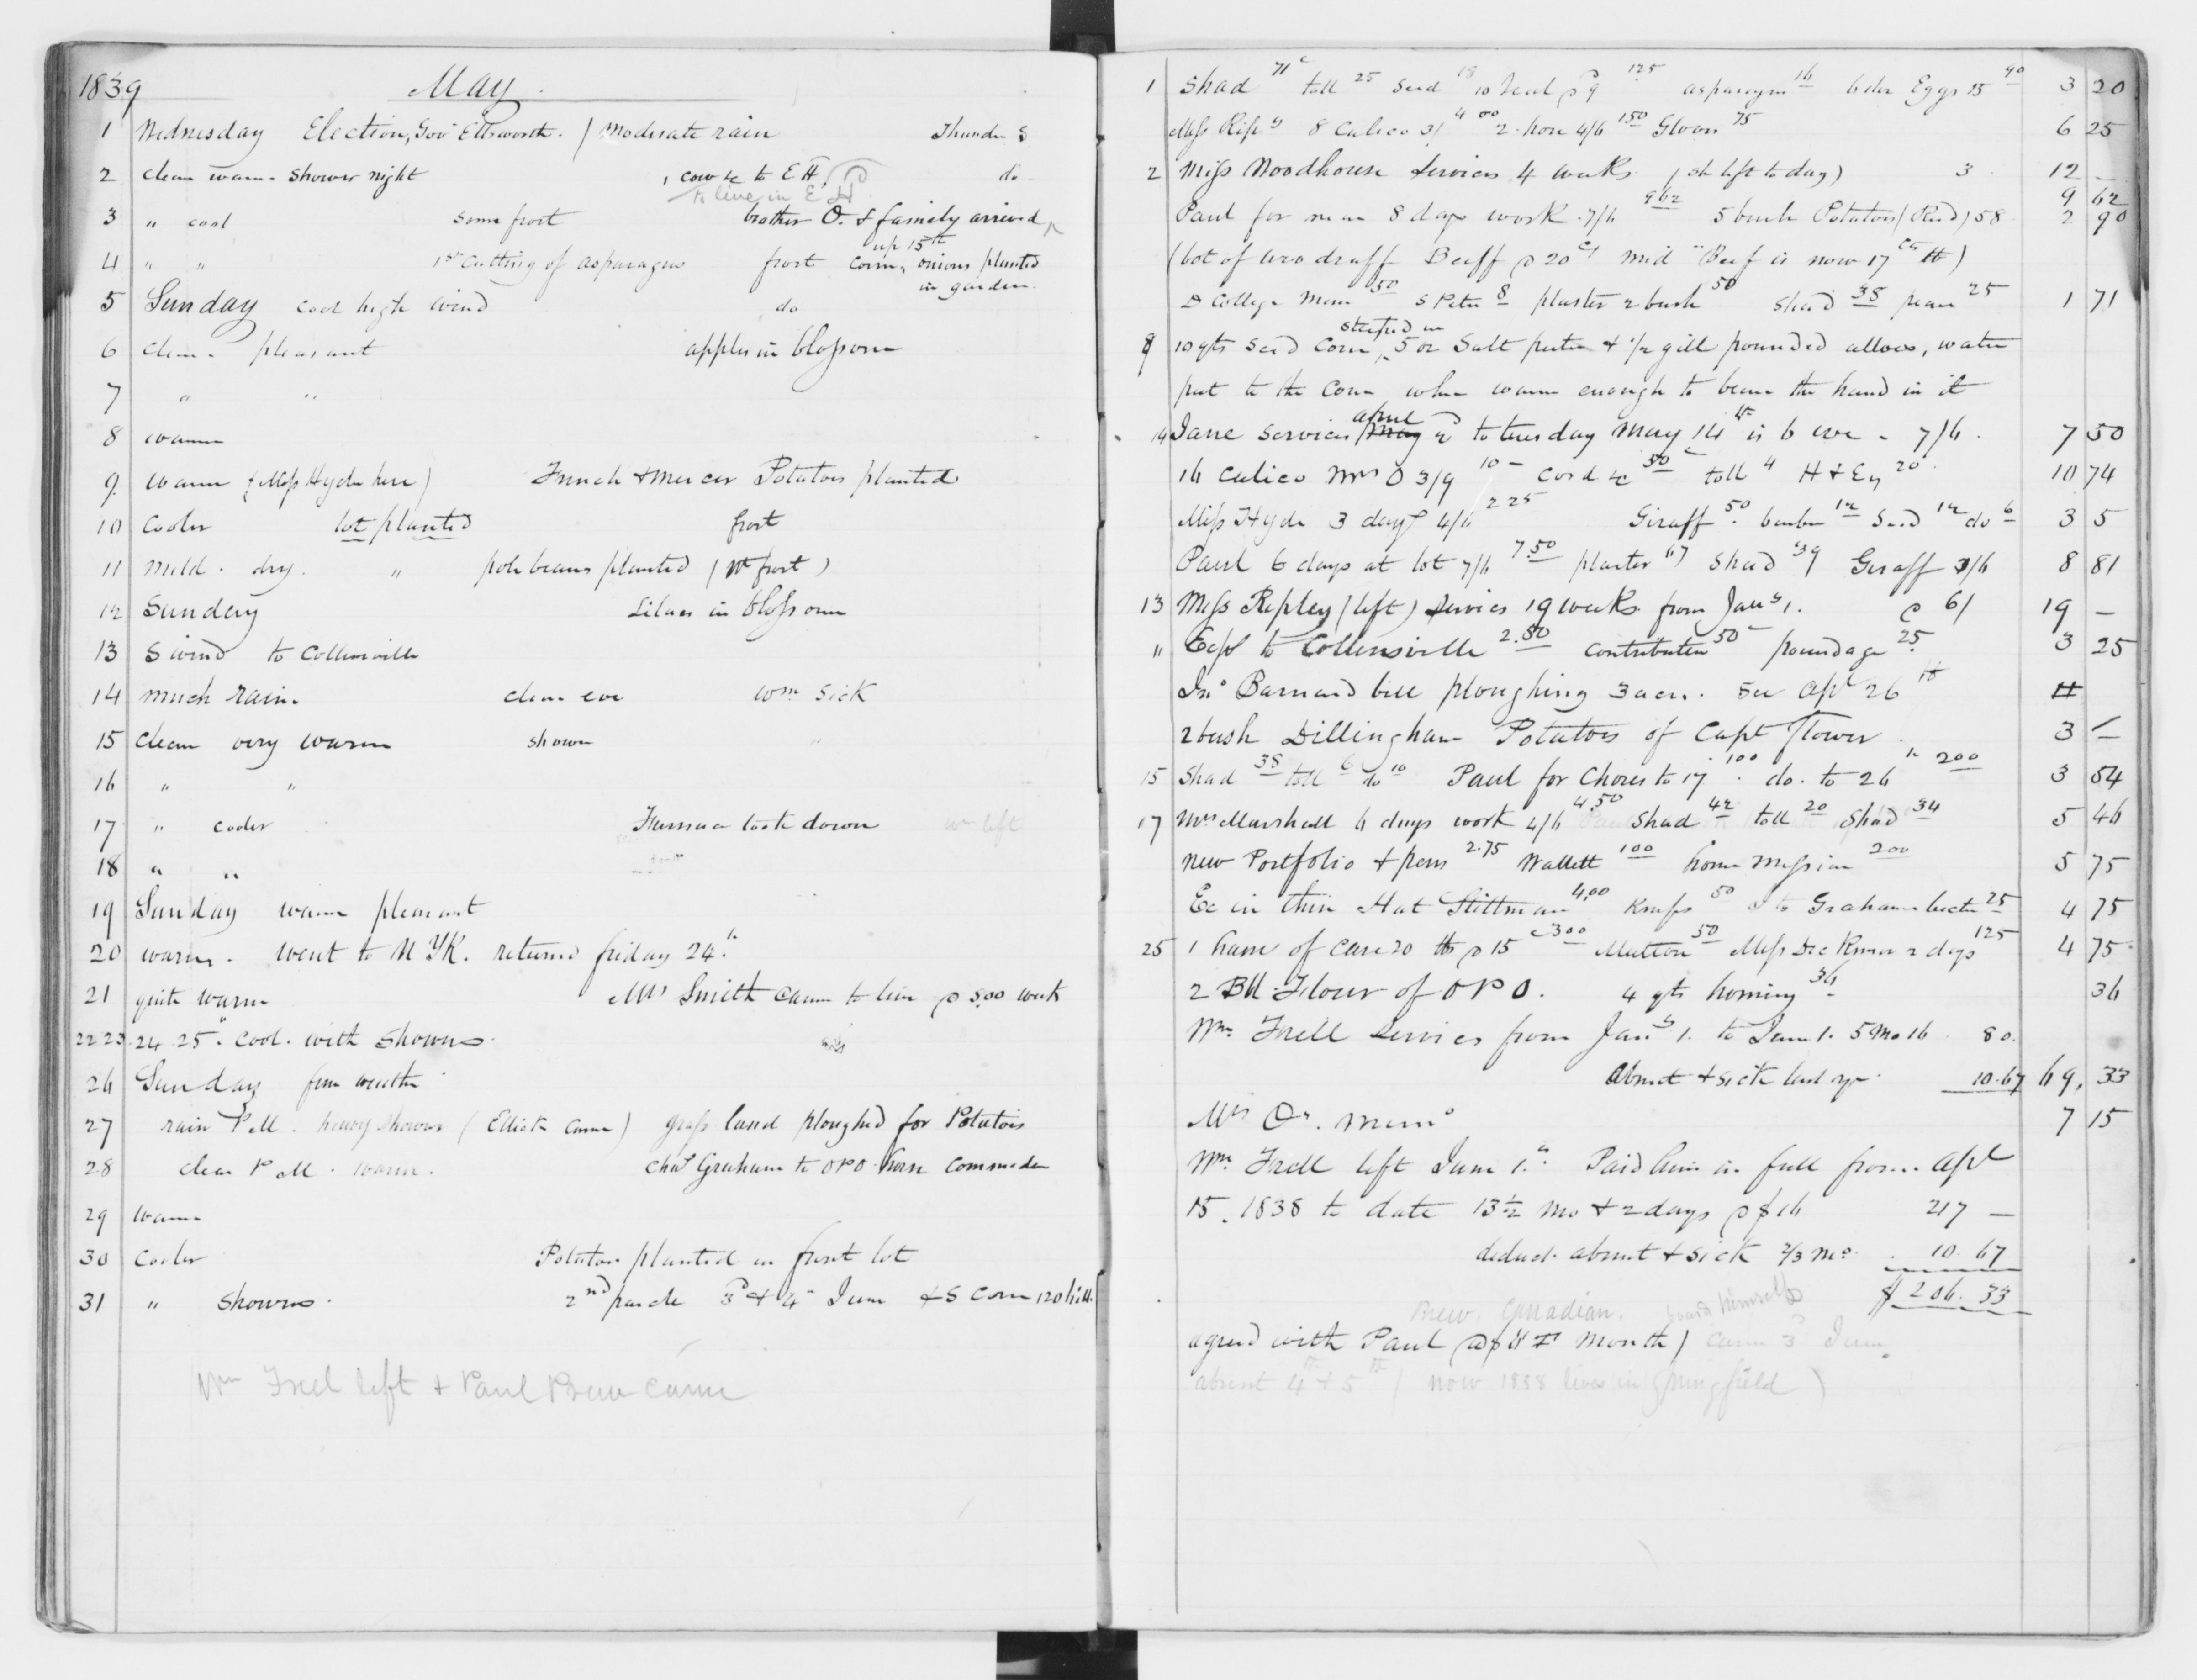 1839 May
1 Wednesday Election, Gov Ellsworth. / Moderate rain Thunder S
2 clear warm shower night , cow &c to E H
to live in E H
3 " cool some frost brother O. & family arrived
up 15th
4 " " 1st Cutting of asparagus frost Corn, onions planted
in garden
5 Sunday cool high wind do
6 clear pleasant apples in blossom
7 " "
8 warm
9 warm (Miss Hyde here) French & Mercer Potatoes planted
10 Cooler lot planted frost
11 mild . dry . " pole beans planted ( frost )
12 Sunday Lilacs in blossom
13 S wind to Collinsville
14 much rain clear eve Wm sick
15 clear very warm shower "
16 " "
17 " cooler Furnace took down Wm left
18 " "
19 Sunday warm pleasant
20 warm . went to N YK. returned friday 24.
21 quite warm Mrs Smith came to live @ 5.00 week
22 23 24 25 . Cool . with showers
26 Sunday fine weather
27 rain P M . heavy shower ( came ) grass land ploughed for Potatoes
28 clear P M . warm . Chas Graham to OPO horse Commodore
29 warm
30 Cooler Potatoes planted in front lot
31 " showers . 2nd 3d & 4th June & S Corn 120 hill.
Wm left & Paul came
1 Shad 71c toll 25 Seed 18 10 Veal @ 9 125 asparagus 16 6 doz Eggs 15 90 3 20
Miss Rip y 8 Calico 3/ 4 00 2 hose 4/6 150 Gloves 75 6 25
2 Miss Woodhouse Services 4 weeks ( left to day) 3 12 -
Paul for near 8 days work 7/6 962 5 bush Potatoes (Red) 58 9 62
2 90
(bot of Woodruff Beeff @ 20 cts Beef is now 17 cts lb)
College 50 S Petr 8 plaster 2 bush 50 Shad 38 25 1 71
steeped in
9 10 qts Seed Corn 5 oz Salt petre & 1/2 gill pounded alloes, water
put to the Corn when warm enough to bear the hand in it
April
14 Jane Services May 2d to tuesday May 14th is 6 we 7/6 . 7 50
16 Calico Mrs O 3/9 10 - Cord &c 50 toll 4 H & E 20 10 74
Miss Hyde 3 days 4/6 2 25 Giraff 50 12 Seed 12 do 6 3 5
Paul 6 days at lot 7/6 7.50 plaster 67 Shad 39 Geraff /6 8 81
13 Miss Repley (left) Services 19 weeks from Jany 1. @ 6/ 19 -
" Exps to Collinsville 2.50 Contribution 50 poundage 25 3 25
Jno Barnard bill ploughing 3 acre . See Apl 26th
2 bush Dillingham Potatoes of Capt Flower 3 -
15 Shad 38 toll 6 do 10 Paul for Chores to 17 . 100 do. to 26 200 3 54
17 Mrs Marshall 6 days work 4/6 4 50 Shad 42 toll 20 Shad 34 5 46
New Portfolio & pens 2.75 Wallett 100 home mission 200 5 75
Ex in thin Hat Stillman 4,00 Knifes 50 to Graham lectu 25 4 75
25 1 ham of Case 20 lb @ 15 300 Mutton 50 Miss Dickinson 2 days 125 4 75
2 Bbl Flour of O P O . 4 qts homing 36 36
Wm Services from Jany 1. to June 1. 5 Mo 16 80.
Absent & sick 10.67 69, 33
Mrs Os. Memo 7 15
Wm left June 1. Paid him in full from Apl
15. 1838 to date 13 1/2 mo & 2 days @ $16 217 -
deduct absent & sick 2/3 mo . 10.67
$ 206.33
Canadian. boards himself
agreed with Paul @ month) came 3d June
absent 4 & 5th ( now 1858 lives in Springfield )